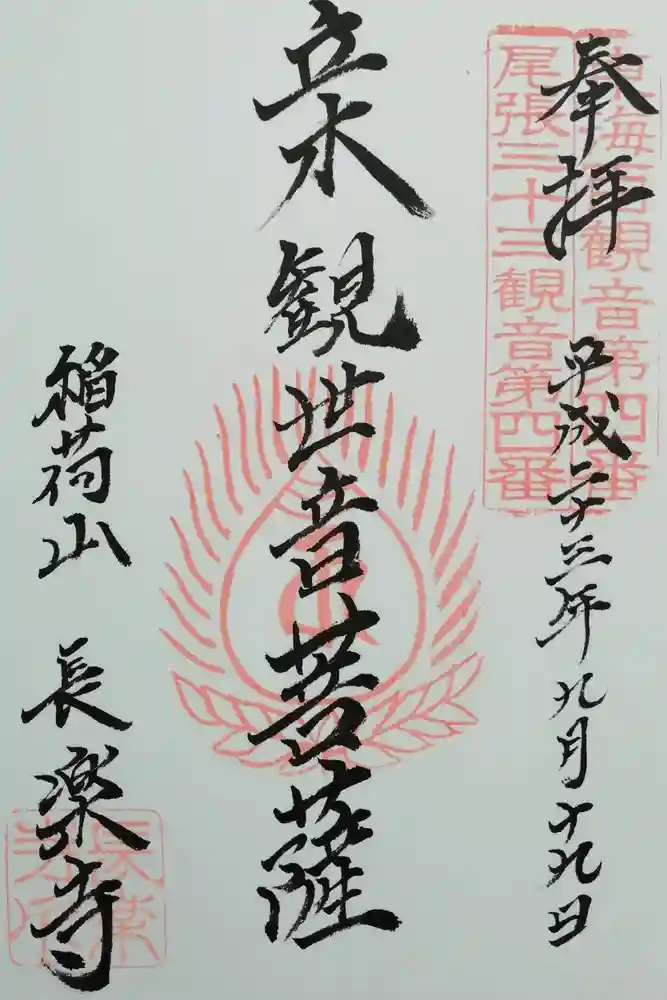 奉拝
平成二十三年九月十九日
東海百観音第四番
尾張三十三観音第四番
立木観世音菩薩
稲荷山 長楽寺